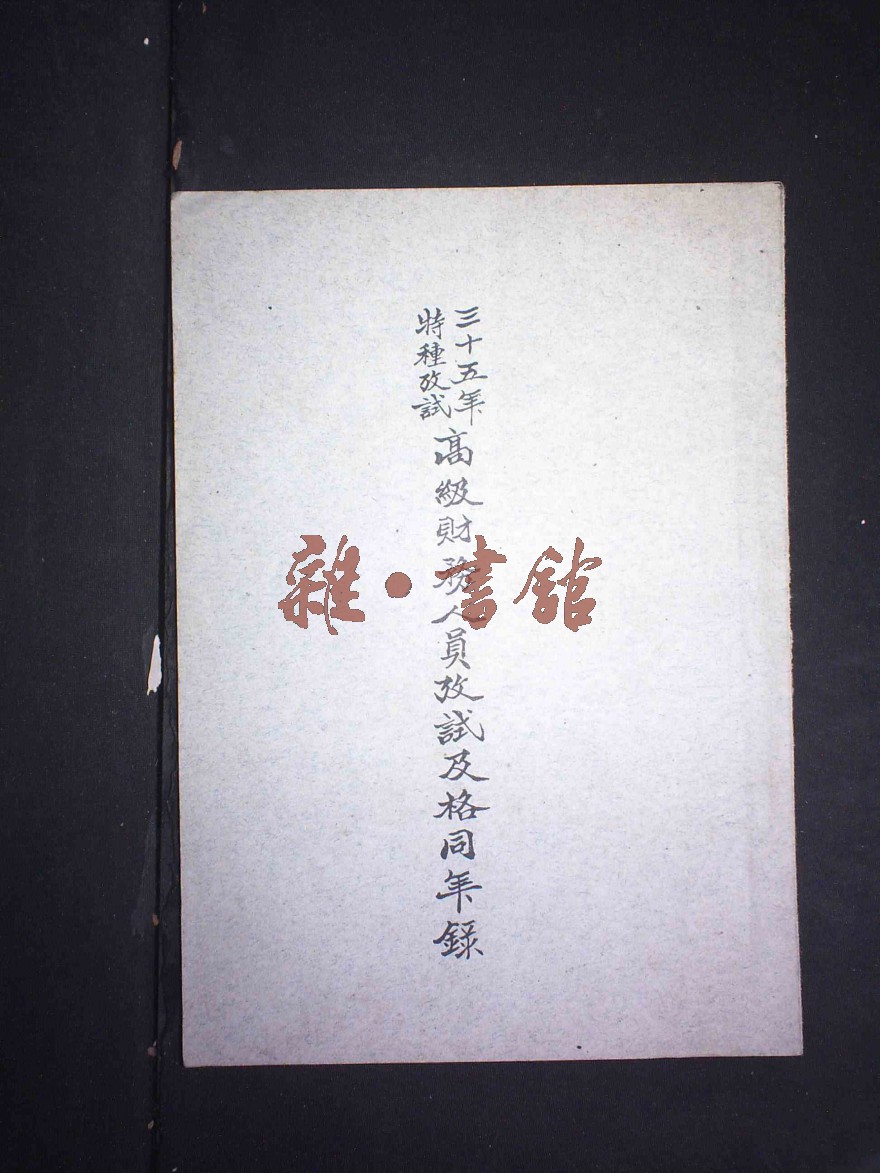 三十五年
特種攷試
高級財務人員攷試及格同年錄
雜·書館